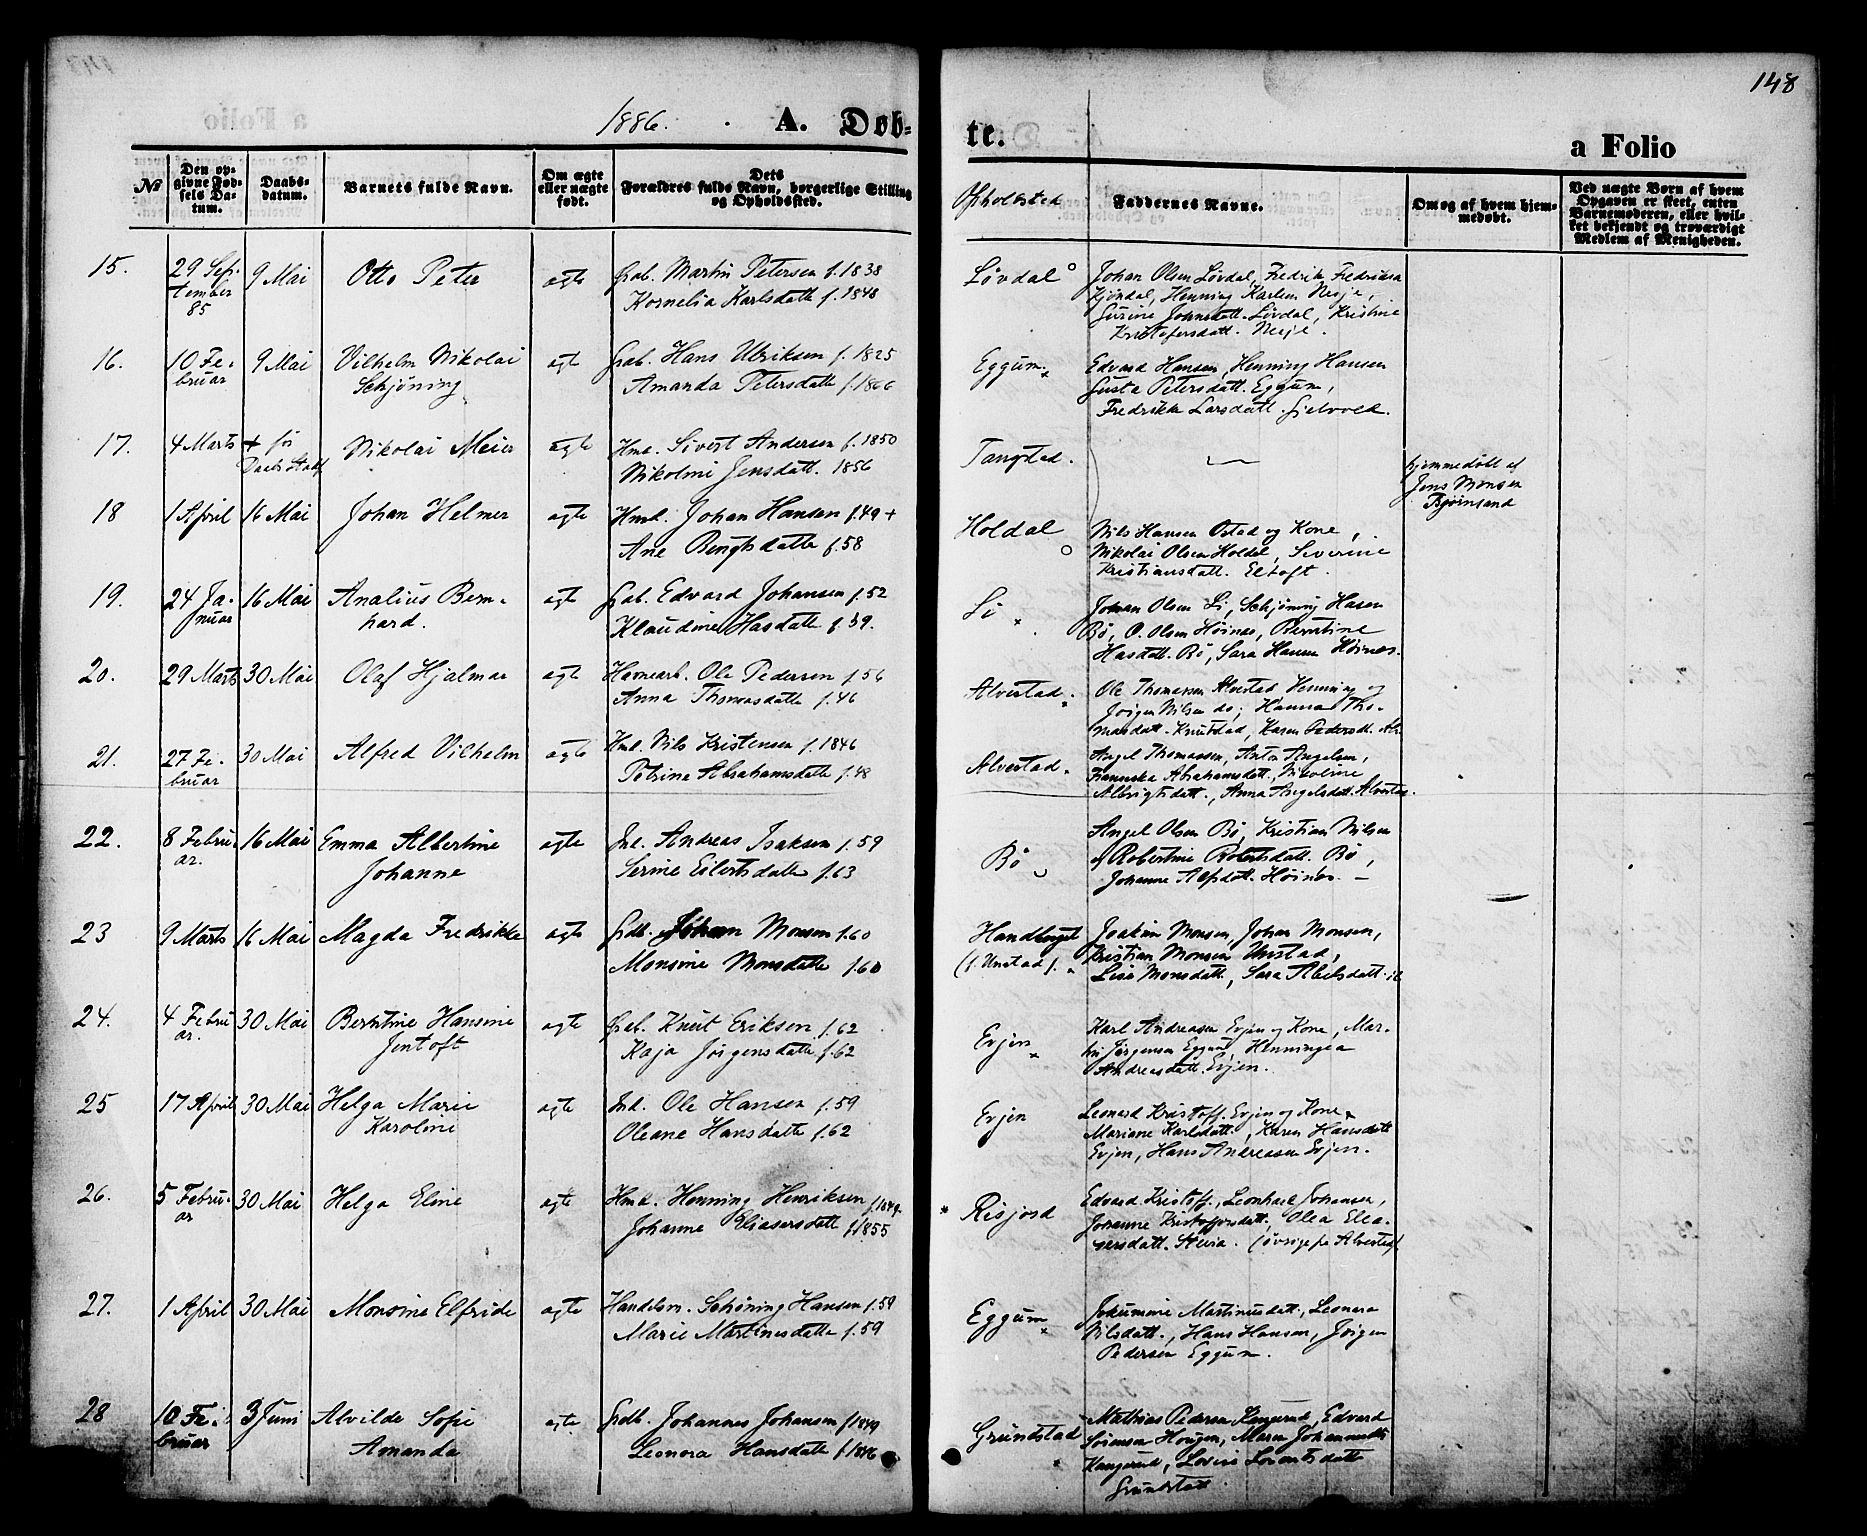 148
1886.
A. Døb-
te.
a Folio
№
Den op-
givne Fød-
sels Da-
tum.
Daabs-
datum.
Barnets fulde Navn.
Om ægte
eller uægte
født.
Dets
Forældres fulde Navn, borgerlige Stilling
og Opholdssted.
Opholdsted
Faddernes Navne.
Om og af hvem hjem-
medøbt.
Ved uægte Børn af hvem
Opgaven er skeet, enten
Barnemoderen, eller hvil-
ket bekjendt og troværdigt
Medlem af Menigheden.
15.
29 Sep-
tember
85
9 Mai
Otto Peter
ægte
Gab. Martin Petersen f. 1838
Kornelia Karlsdatte f. 1848
Løvdal
Johan Olsen Løvdal, Fredrik Fredriksen
Henning Karlsen Nesje,
Gurine Johnsdatt. Løvdal, Kristine
Kristofersdatt. Nesje.
16.
10 Fe-
bruar
9 Mai
Vilhelm Nikolai
Schjöning
ægte
Gab. Hans Ulriksen f. 1825
Amanda Petersdatte f. 1866
Eggum
Edvard Hansen, Henning Hansen
Gusta Petersdatt. Eggum,
Fredrikke Larsdatt.
17.
4 Marts
+ før
Nikolai Meier
ægte
Hmd. Sivert Andersen f. 1850
Nikoline Jensdatt. 1856
Tangstad.
hjemmedøbt af
Jens Monsen
Bjørnsand
18
1 April
16 Mai
Johan Helmer
ægte
Hmd. Johan Hansen f. 49 +
Ane Bengtsdatte f. 58
Holdal
Nils Hansen Ostad og Kone,
Nikolai Olsen Holdal, Severine
Kristiansdatt. Eltoft.
19.
24 Ja-
nuar
16 Mai
Analius Bern-
hard.
ægte
Gab. Edvard Johansen f. 52
Klaudine Hasdatte f. 59.
Li
Johan Olsen Li, Schjöning Hasen
Bö, O. Olsen Höinæs, Berntine
Hasdatt. Bö, Sara Hansen Höinæs.
20.
29 Marts
30 Mai
Olaf Hjalmar
ægte
Havnearb. Ole Pedersen f. 56
Anna Thomasdatte f. 46
Alvestad.
Ole Thomassen Alvestad Henning og
Jörgen Nilsen do; Hanna Tho-
masdatt. Knutstad, Karen Pedersd. Alv.
21.
27 Fe-
bruar
30 Mai
Alfred Vilhelm
ægte
Hmd. Nils Kristensen f. 1846
Petrine Abrahamsdatte f. 48
Alvestad.
Angel Thomassen, Anton Angelsen,
Franciska Abrahamsdatt., Nikoline
Albrigtsdatt., Anna Angelsdatt. Alvestad.
22.
8 Febru-
ar.
16 Mai
Emma Albertine
Johanne
ægte
Ind. Andreas Isaksen f. 59
Serine Eilertsdatte f. 63
Bö
Angel Olsen Bö, Kristian Nilsen
og Robertine Robertsdatt. Bö,
Johanne Alfsdatt. Höinæs. –
23
9 Marts
16 Mai
Magda Fredrikke
ægte
Grdb. Johan Monsen f. 60
Monsine Monsdatte f. 60
Handberget
(f. Unstad).
Joakim Monsen, Johan Monsen,
Kristian Monsen Unstad,
Lise Monsdatt., Sara Abelsdatt. ib
24.
4 Febru-
ar.
30 Mai
Berntine Hansine
Jentoft
ægte
Gab. Knut Eriksen f. 62
Kaja Jörgensdatte f. 62
Evjen
Karl Andreassen Evjen og Kone, Mar-
tin Jörgensen Eggum, Henningea
Andreasdatt. Evjen.
25
17 April
30 Mai
Helga Marie
Karoline
ægte
Ind. Ole Hansen f. 59
Oleane Hansdatte f. 62
Evjen
Leonard Kristoff. Evjen og Kone
Mariane Karlsdatt., Karen Hansdatt
Evjen, Hans Andreassen Evjen.
26.
5 Febru-
ar
30 Mai
Helga Eline
ægte
Hmd. Henning Henriksen f. 1849.
Johanne Eliasersdatte f. 1855
Risjord
Edvard Kristoff., Leonhard Johansen,
Johanne Kristoffersdatt., Olea Elea-
sersdatt. (övrige fra Alvestad)
27.
1 April
30 Mai
Monsine Elfride
ægte
Handelsm. Schöning Hansen f. 59
Marie Martinusdatte f. 59
Eggum
Jokumine Martinusdatt., Leonora
Nilsdatt., Hans Hansen, Jörgen
Pedersen Eggum.
28
10 Fe-
bruar
3 Juni
Alvilde Sofie
Amanda
ægte
Grdb. Johannes Johansen f. 1849
Leonora Hansdatte f. 1846
Grundstad
Mathias Pedersen Kangerud, Edvard
Sörensen Hougen, Maren Johannesdt
Kangerud, Lovise Lorentsdatte
Grundstad